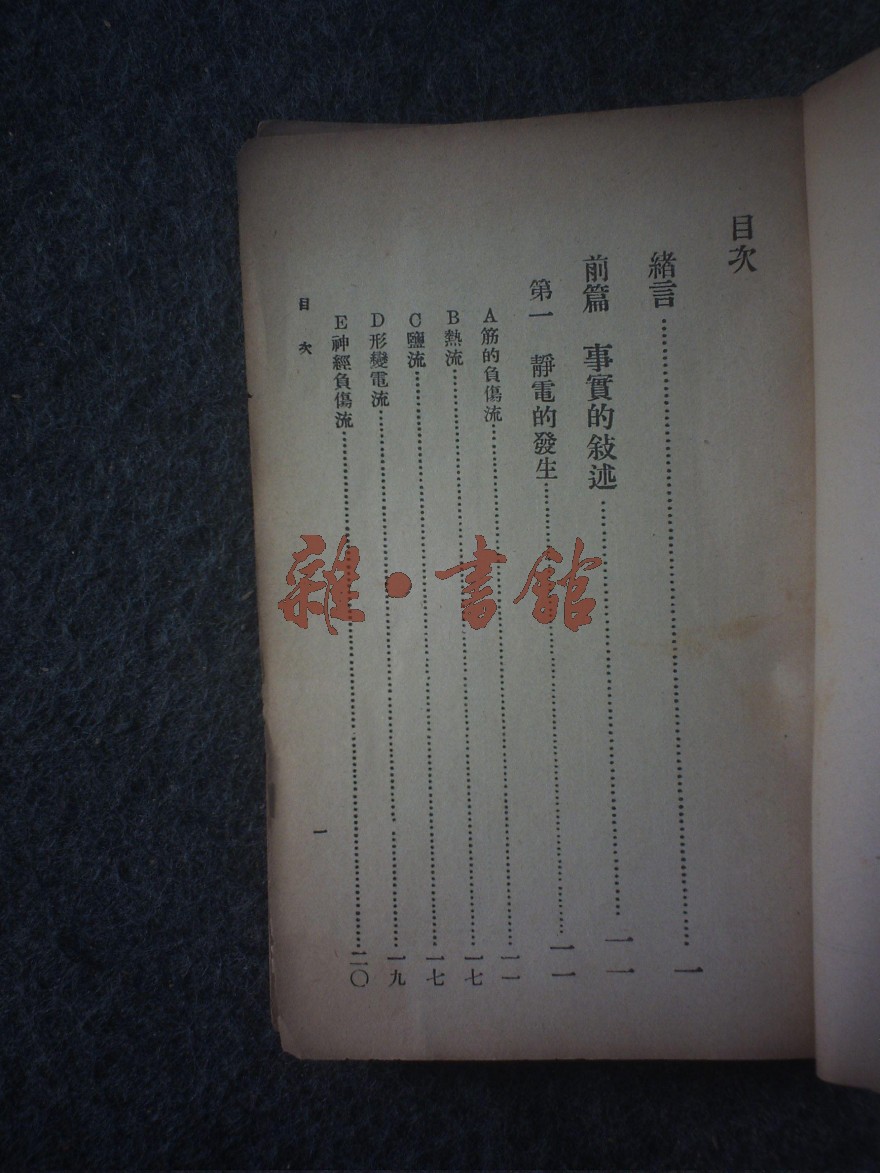 目次
緒言……………………一
前篇　事實的敍述……………………一一
第一　靜電的發生……………………一一
A筋的負傷流……………………一一
B熱流……………………一七
C鹽流……………………一七
D形變電流……………………一九
E神經負傷流……………………二〇
目次　一
雜·書館